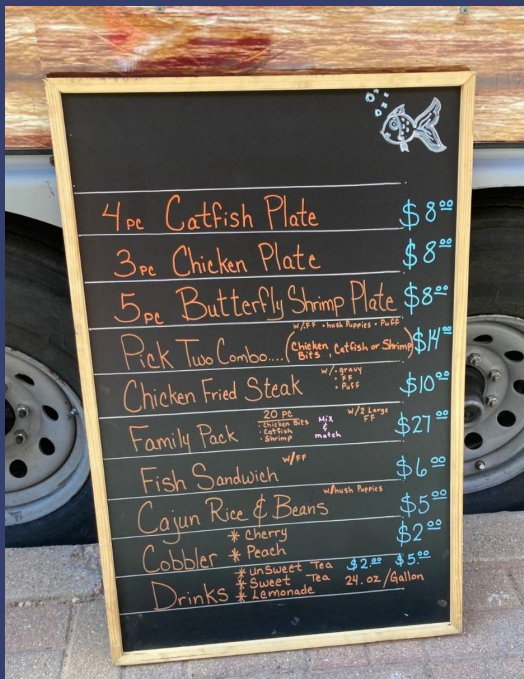 4pc Catfish Plate $8.00
3pc Chicken Plate $8.00
5pc Butterfly Shrimp Plate $8.00
w/FF • hush Puppies • Puff
Pick Two Combo.... (Chicken Bits, Catfish or Shrimp) $14.00
Chicken Fried Steak w/ • gravy • FF • Puff $10.00
Family Pack 20 pc • Chicken Bits • Catfish • Shrimp Mix & match w/2 Large FF $27.00
Fish Sandwich w/FF $6.00
Cajun Rice & Beans w/hush Puppies $5.00
Cobbler * Cherry * Peach $2.00
Drinks * unSweet Tea * Sweet Tea * Lemonade $2.00 $5.00
24. oz / Gallon